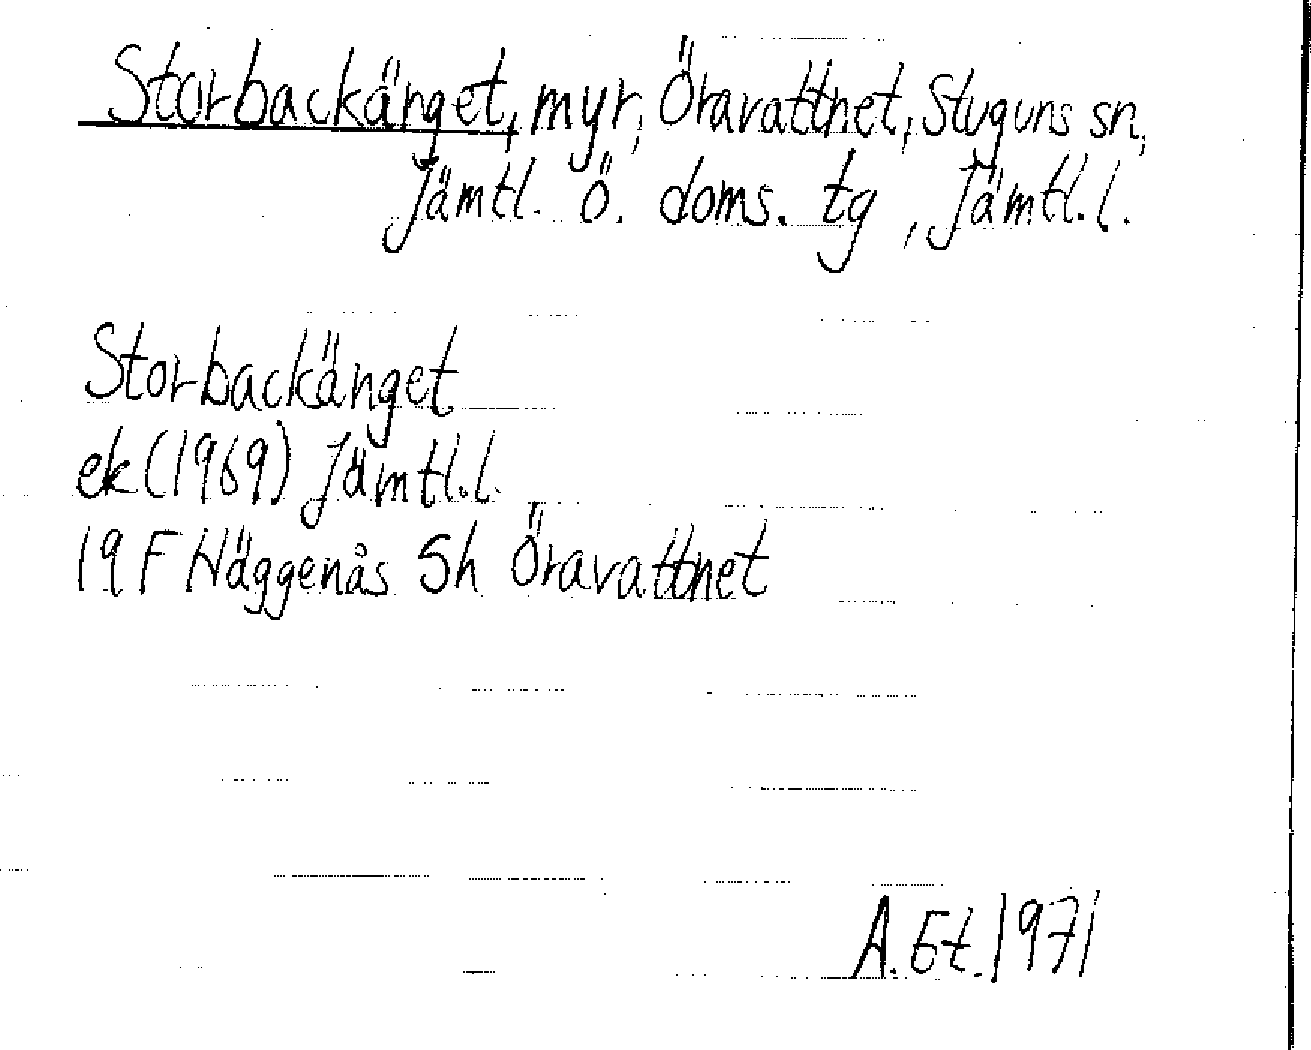 Storbackänget, myr, Öravattnet, Stuguns sn,
Jämtl. Ö. doms. tg, Jämtl.l.
Storbackänget
ek (1969) Jämtl.l.
19 F Häggenås 5h Öravattnet
A. Et. 1971